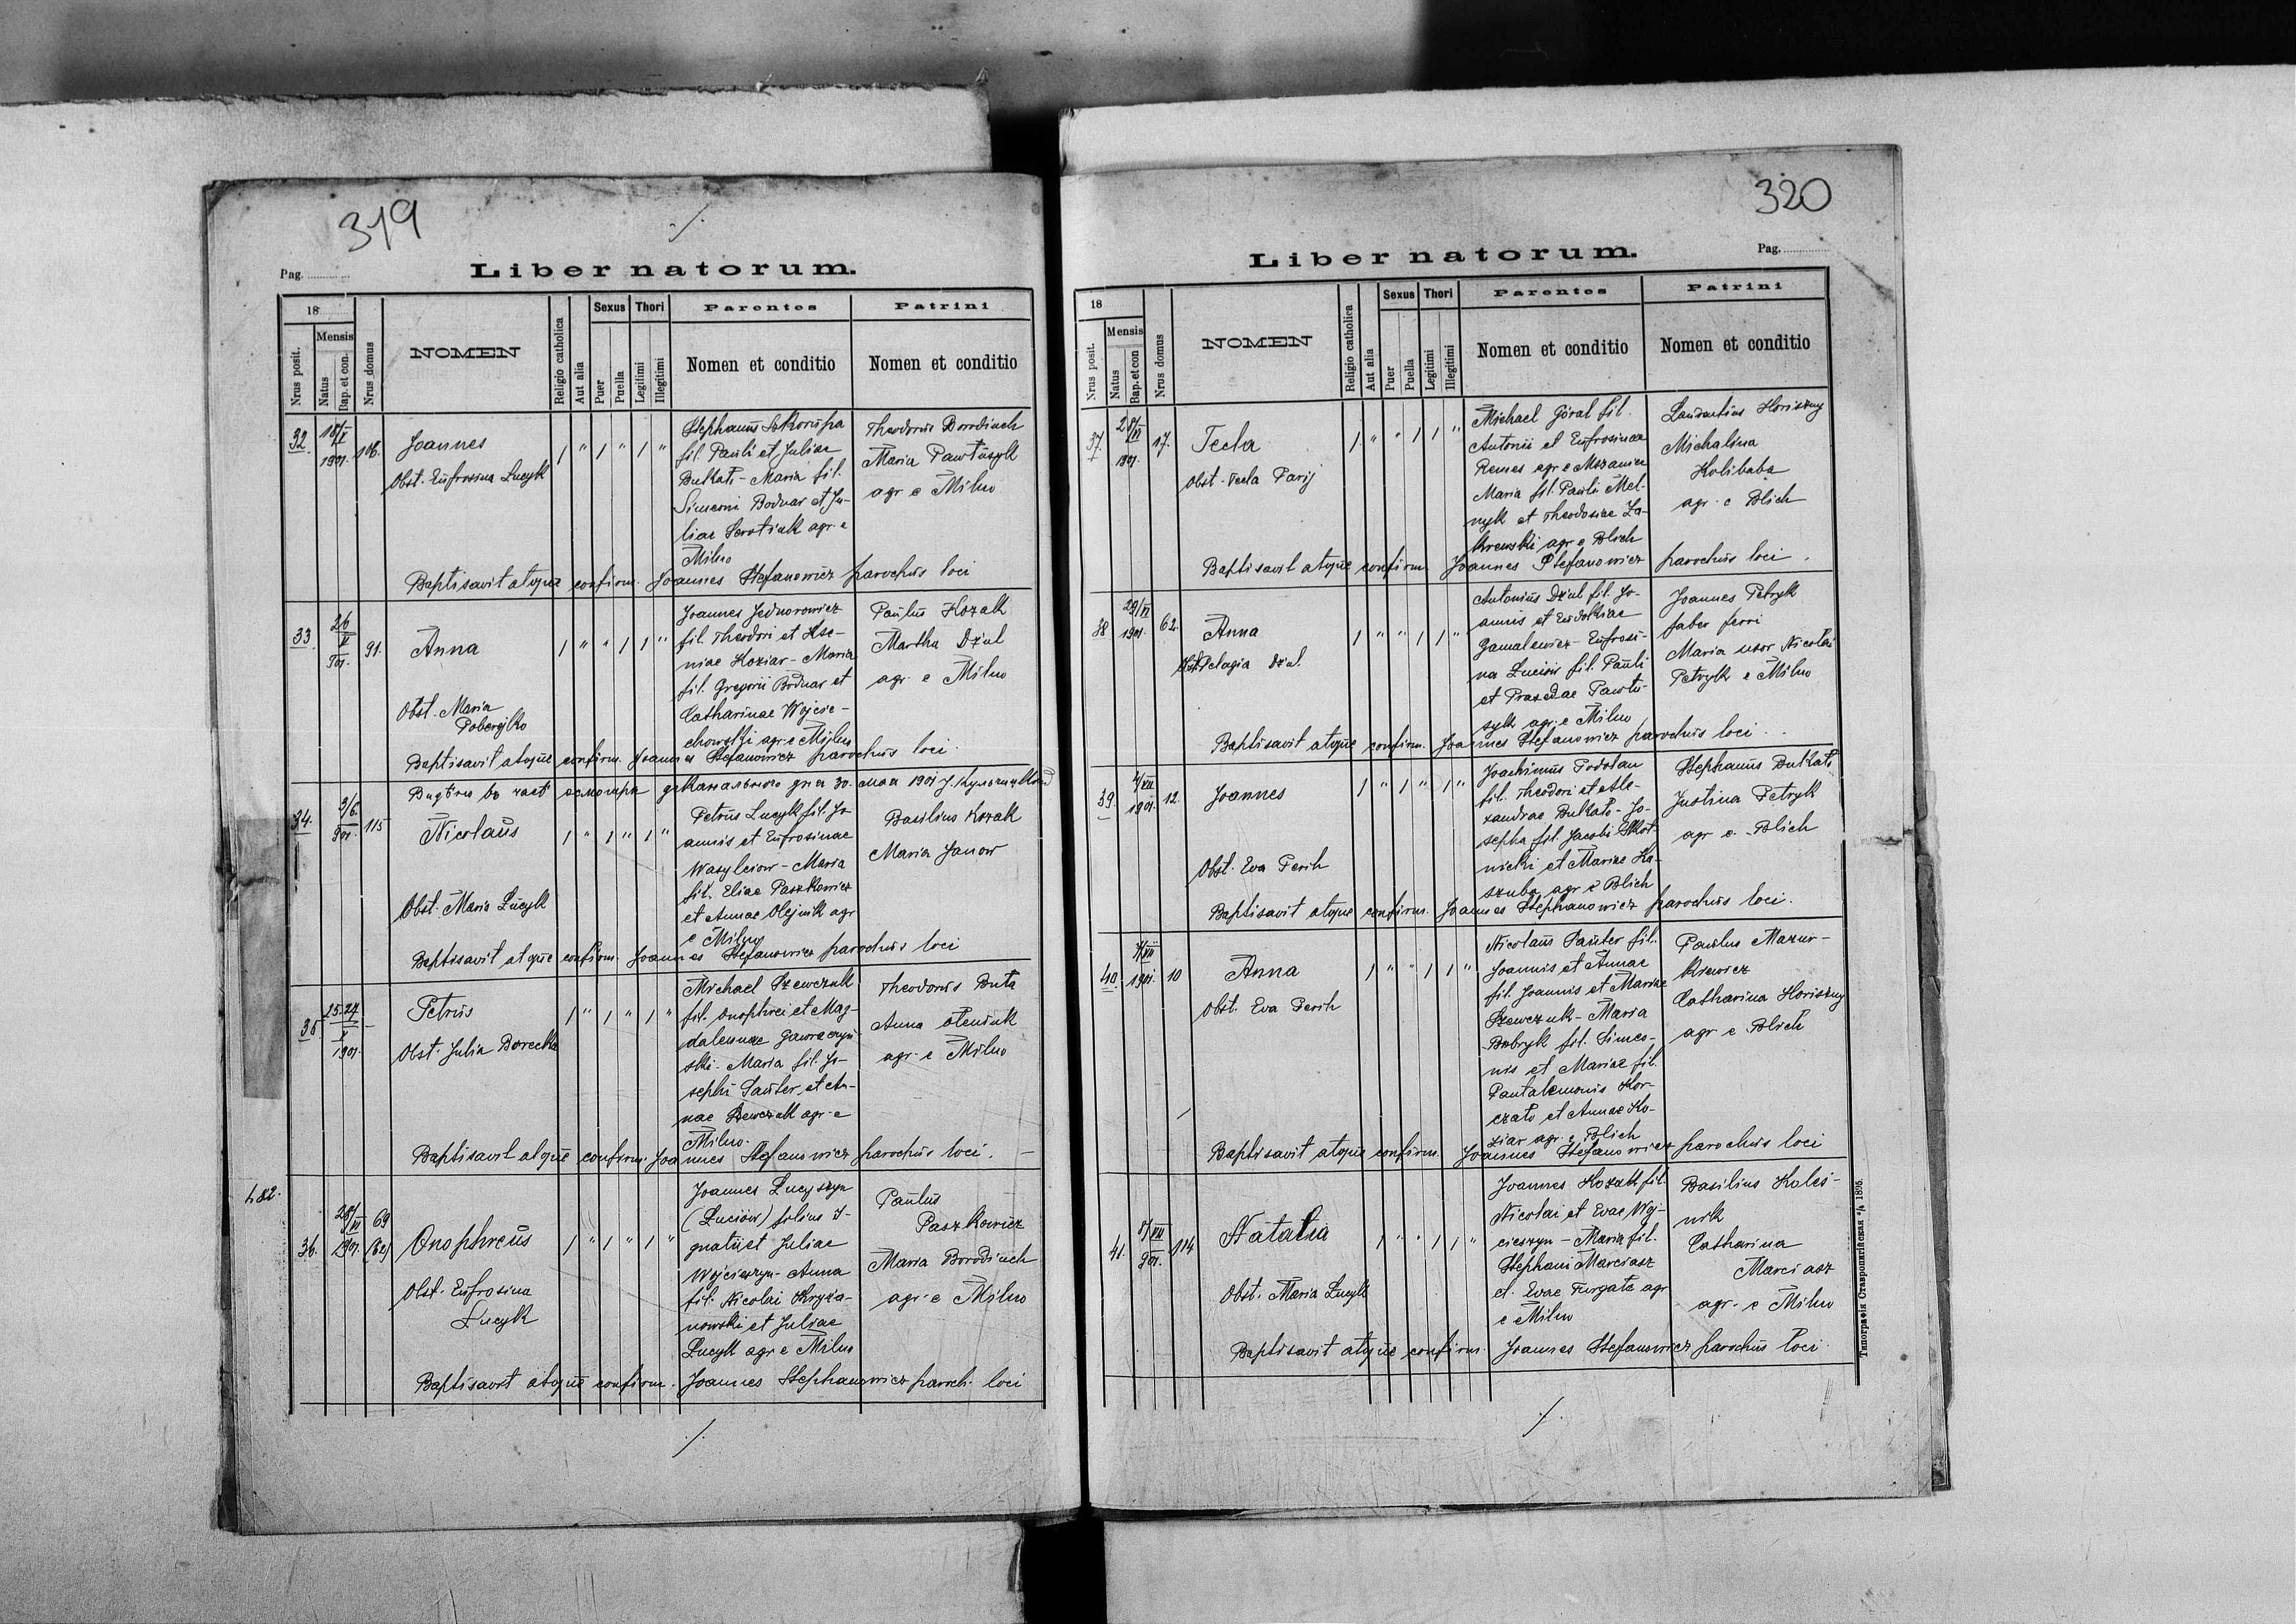 319
Liber natorum.
Pag.
18
Nrus posit.
Mensis
Natus
Bap. et con.
Nrus domus
NOMEN
Religio catholica
Aut alia
Sexus
Puer
Puella
Thori
Legitimi
Illegitimi
Parentes
Nomen et conditio
Patrini
Nomen et conditio
32
18/V
1901.
106.
Joannes
Obst. Eufrosina Lucyk
1 " 1 " 1 "
Stephanus Skorupa
fil. Pauli et Juliae
Butkało - Maria fil.
Simeoni Bodnar et Ju-
liae Serotiuk agr. e
Milno
Theodorus Borodiuch
Maria Pawtusyk
agr e Milno
Baptisavit atque confirm. Joannes Stefanowicz parochus loci
33
26
V
901.
91.
Anna
Obst. Maria
Poberejko
1 " " 1 1 "
Joannes Jednorowicz
fil. Theodori et Xse-
niae Koziar - Maria
fil. Gregorii Bodnar et
Catharinae Wojcie-
chowski agr. e Milno
Paulus Kozak
Martha Dżul
agr. e Milno
Baptisavit atque confirm. Joannes Stefanowicz parochus loci.
30. мая 1901
34.
3/6.
901.
115
Nicolaus
Obst. Maria Lucyk
1 " 1 " 1 "
Petrus Lucyk fil. Jo-
annis et Eufrosinae
Wasylciow - Maria
fil. Eliae Paszkowicz
et Annae Olejnik agr
e Milno
Basilius Kozak
Maria Janow
Baptisavit atque confirm. Joannes Stefanowicz parochus loci
35
25. 27
1901.
Petrus
Obst. Julia Borecka
1 " 1 " 1 "
Michael Szewczuk
fil. Onophrei et Mag-
dalennae Gawreczyń
ski - Maria fil. Jo-
sephi Sauter et An-
nae Szewczuk agr. e
Milno.
Theodorus Buta
Anna Oleniuk
agr. e Milno
Baptisavit atque confirm. Joannes Stefanowicz parochus loci.
482.
36.
28/VI
1901.
69
Onophreus
Obst. Eufrosina
Lucyk
1 " 1 " 1 "
Joannes Lucyszyn
(Luciow) filius I-
gnatii et Juliae
Wojcieszyn - Anna
fil. Nicolai Kryża-
nowski et Juliae
Lucyk agr e Milno
Paulus
Paszkowicz
Maria Borodiuch
agr. e Milno
Baptisavit atque confirm. Joannes Stephanowicz paroch. loci
320
Liber natorum.
Pag.
18
Nrus posit.
Mensis
Natus
Bap. et con
Nrus domus
NOMEN
Religio catholica
Aut alia
Sexus
Puer
Puella
Thori
Legitimi
Illegitimi
Parentes
Nomen et conditio
Patrini
Nomen et conditio
37.
28/VI
1901.
17.
Tecla
Obst. Tecla Parij
1 " " 1 1 "
Michael Góral fil.
Antonii et Eufrosinae
Remes agr e Mszaniec
Maria fil. Pauli Mel-
nyk et Theodosiae Za-
krewski agr e Blich
Laurentius Horiszny
Michalina
Kolibaba
agr. e Blich
Baptisavit atque confirm. Joannes Stefanowicz parochus loci.
38
29/VI
1901.
62.
Anna
Obst. Pelagia Dżul.
1 " " 1 1 "
Antonius Dżul fil. Jo-
annis et Eudokiae
Gamalewicz - Eufrosi-
na Luciow fil. Pauli
et Praxedae Pawtu-
syk agr. e Milno
Joannes Petryk
faber ferri
Maria uxor Nicolai
Petryk e Milno
Baptisavit atque confirm. Joannes Stefanowicz parochus loci.
39.
4/VII
1901.
12.
Joannes
Obst. Eva Perih
1 " 1 " 1 "
Joachimus Podolan
fil. Theodori et Ale-
xandrae Butkało - Jo-
sepha fil. Jacobi Skot-
nicki et Mariae Ka-
szuba agr e Blich
Stephanus Butkało
Justina Petryk
agr e. Blich
Baptisavit atque confirm. Joannes Stephanowicz parochus loci.
40.
4/VII
1901.
10
Anna
Obst. Eva Perih
1 " " 1 1 "
Nicolaus Sauter fil.
Joannis et Annae
fil. Joannis et Mariae
Szewczuk - Maria
Bubryk fil. Simeo-
nis et Mariae fil.
Pantalemonis Kor-
czało et Annae Ko-
ziar agr. e Blich
Paulus Mazur-
kiewicz
Catharina Horiszny
agr e Blich
Baptisavit atque confirm. Joannes Stefanowicz parochus loci
41.
5/VII
901.
114
Natalia
Obst. Maria Lucyk
1 " " 1 1 "
Joannes Kozak fil.
Nicolai et Evae Woj-
cieszyn - Maria fil.
Stephani Marciasz
et Evae Furgała agr
e Milno
Basilius Koleś-
nik
Catharina
Marciasz
agr. e Milno
Baptisavit atque confirm. Joannes Stefanowicz parochus loci.
Типографія Ставропигійская 1896.